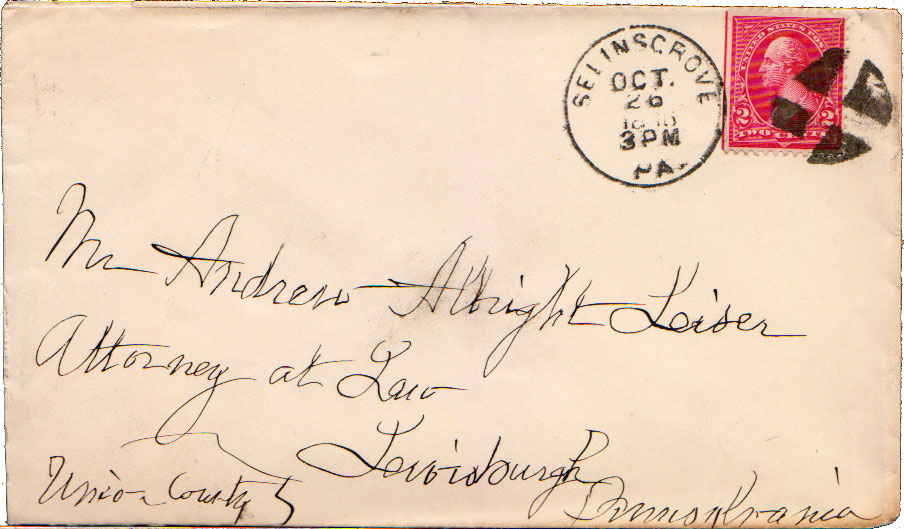 SELINSGROVE
OCT.
26
3PM
PA.
UNITED STATES POST
2 2
TWO CENTS
Mr Andrew Albright Leiser
Attorney at Law
Lewisburgh
Union County
Pennsylvania